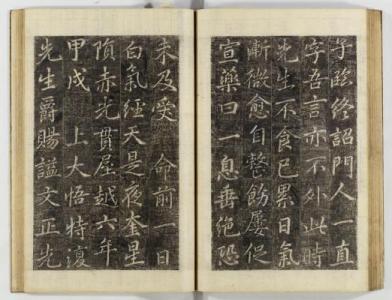 子臨終詔門人一直
字吾言亦不外此時
先生不食已累日氣
漸微愈自整飭屢促
宣藥曰一息垂絕恐
未及受 命前一日
白氣經天是夜奎星
頂赤光貫屋越六年
甲戌 上大悟特復
先生爵賜謚文正先